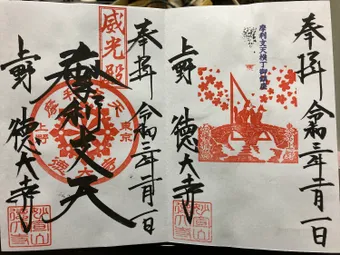 奉拝
令和三年二月一日
摩利支天横丁御鎮座
上野
徳大寺
奉拝
令和三年二月一日
威光殿
摩利支天
摩利支天
上野
徳大寺